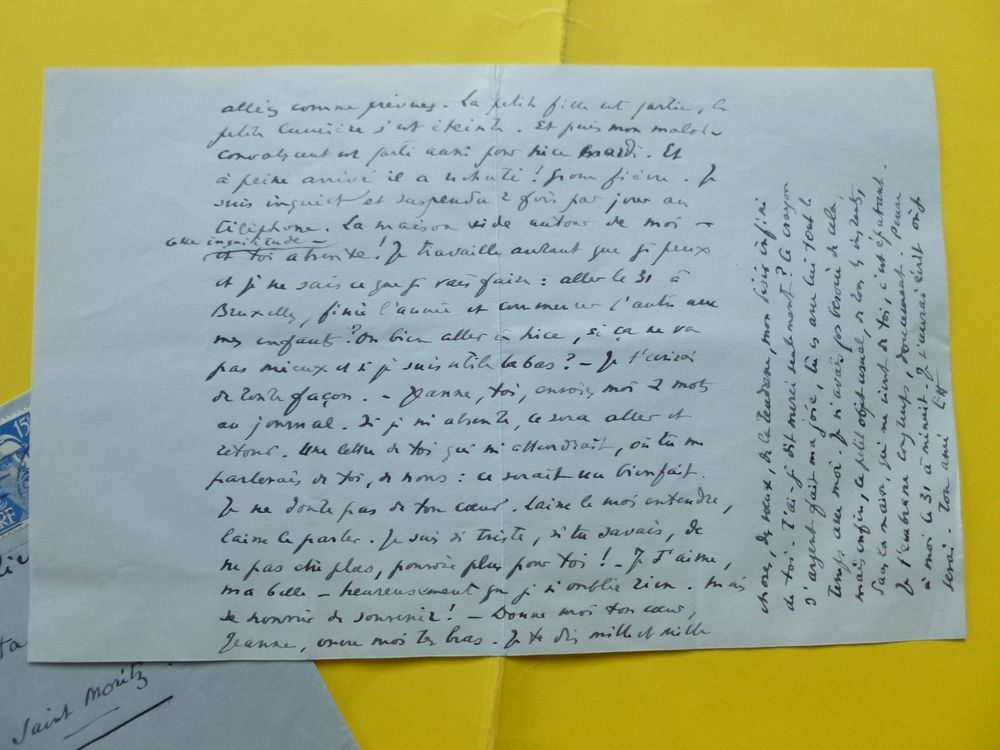 alliez comme prévues. La petite fille est partie, la
petite lumière s'est éteinte. Et puis mon malade
convalescent est parti aussi pour Nice mardi. Et
à peine arrivé il a rechuté! Grosse fièvre. Je
suis inquiet et suspendu 2 fois par jour au
téléphone. La maison vide autour de moi –
cette inquiétude –
et toi absente! Je travaille autant que je peux
et je ne sais ce que je vais faire : aller le 31 à
Bruxelles, finir l'année et commencer l'autre avec
mes enfants? Ou bien aller à Nice, si ça ne va
pas mieux et si je suis utile là bas? – Je t'écrirai
de toute façon. – Jeanne, toi, envoie moi 2 mots
au journal. Si je m'absente, ce sera aller et
retour. Une lettre de toi qui m'attendrait, où tu me
parlerais de toi, de nous : ce serait un bienfait.
Je ne doute pas de ton cœur. Laisse le moi entendre,
laisse le parler. Je suis si triste, si tu savais, de
ne pas être plus, pouvoir plus pour toi! – Je t'aime,
ma belle – heureusement que je n'oublie rien. Mais
se nourrir de souvenirs! – Donne moi ton cœur,
Jeanne, ouvre moi tes bras. Je te dis mille et mille
choses, des vœux, de la tendresse, mon désir infini
de toi. T'ai-je dit merci seulement? Le crayon
d'argent fait ma joie, tu es avec lui tout le
temps avec moi. Je n'avais pas besoin de cela
mais enfin, ce petit objet usuel, de tous les instants,
dans la main, qui me vient de toi, c'est épatant.
Je t'embrasse longtemps, doucement. Pense
à moi le 31 à minuit. Je t'aurai
serai. Ton ami
15F
RF
Saint Moritz